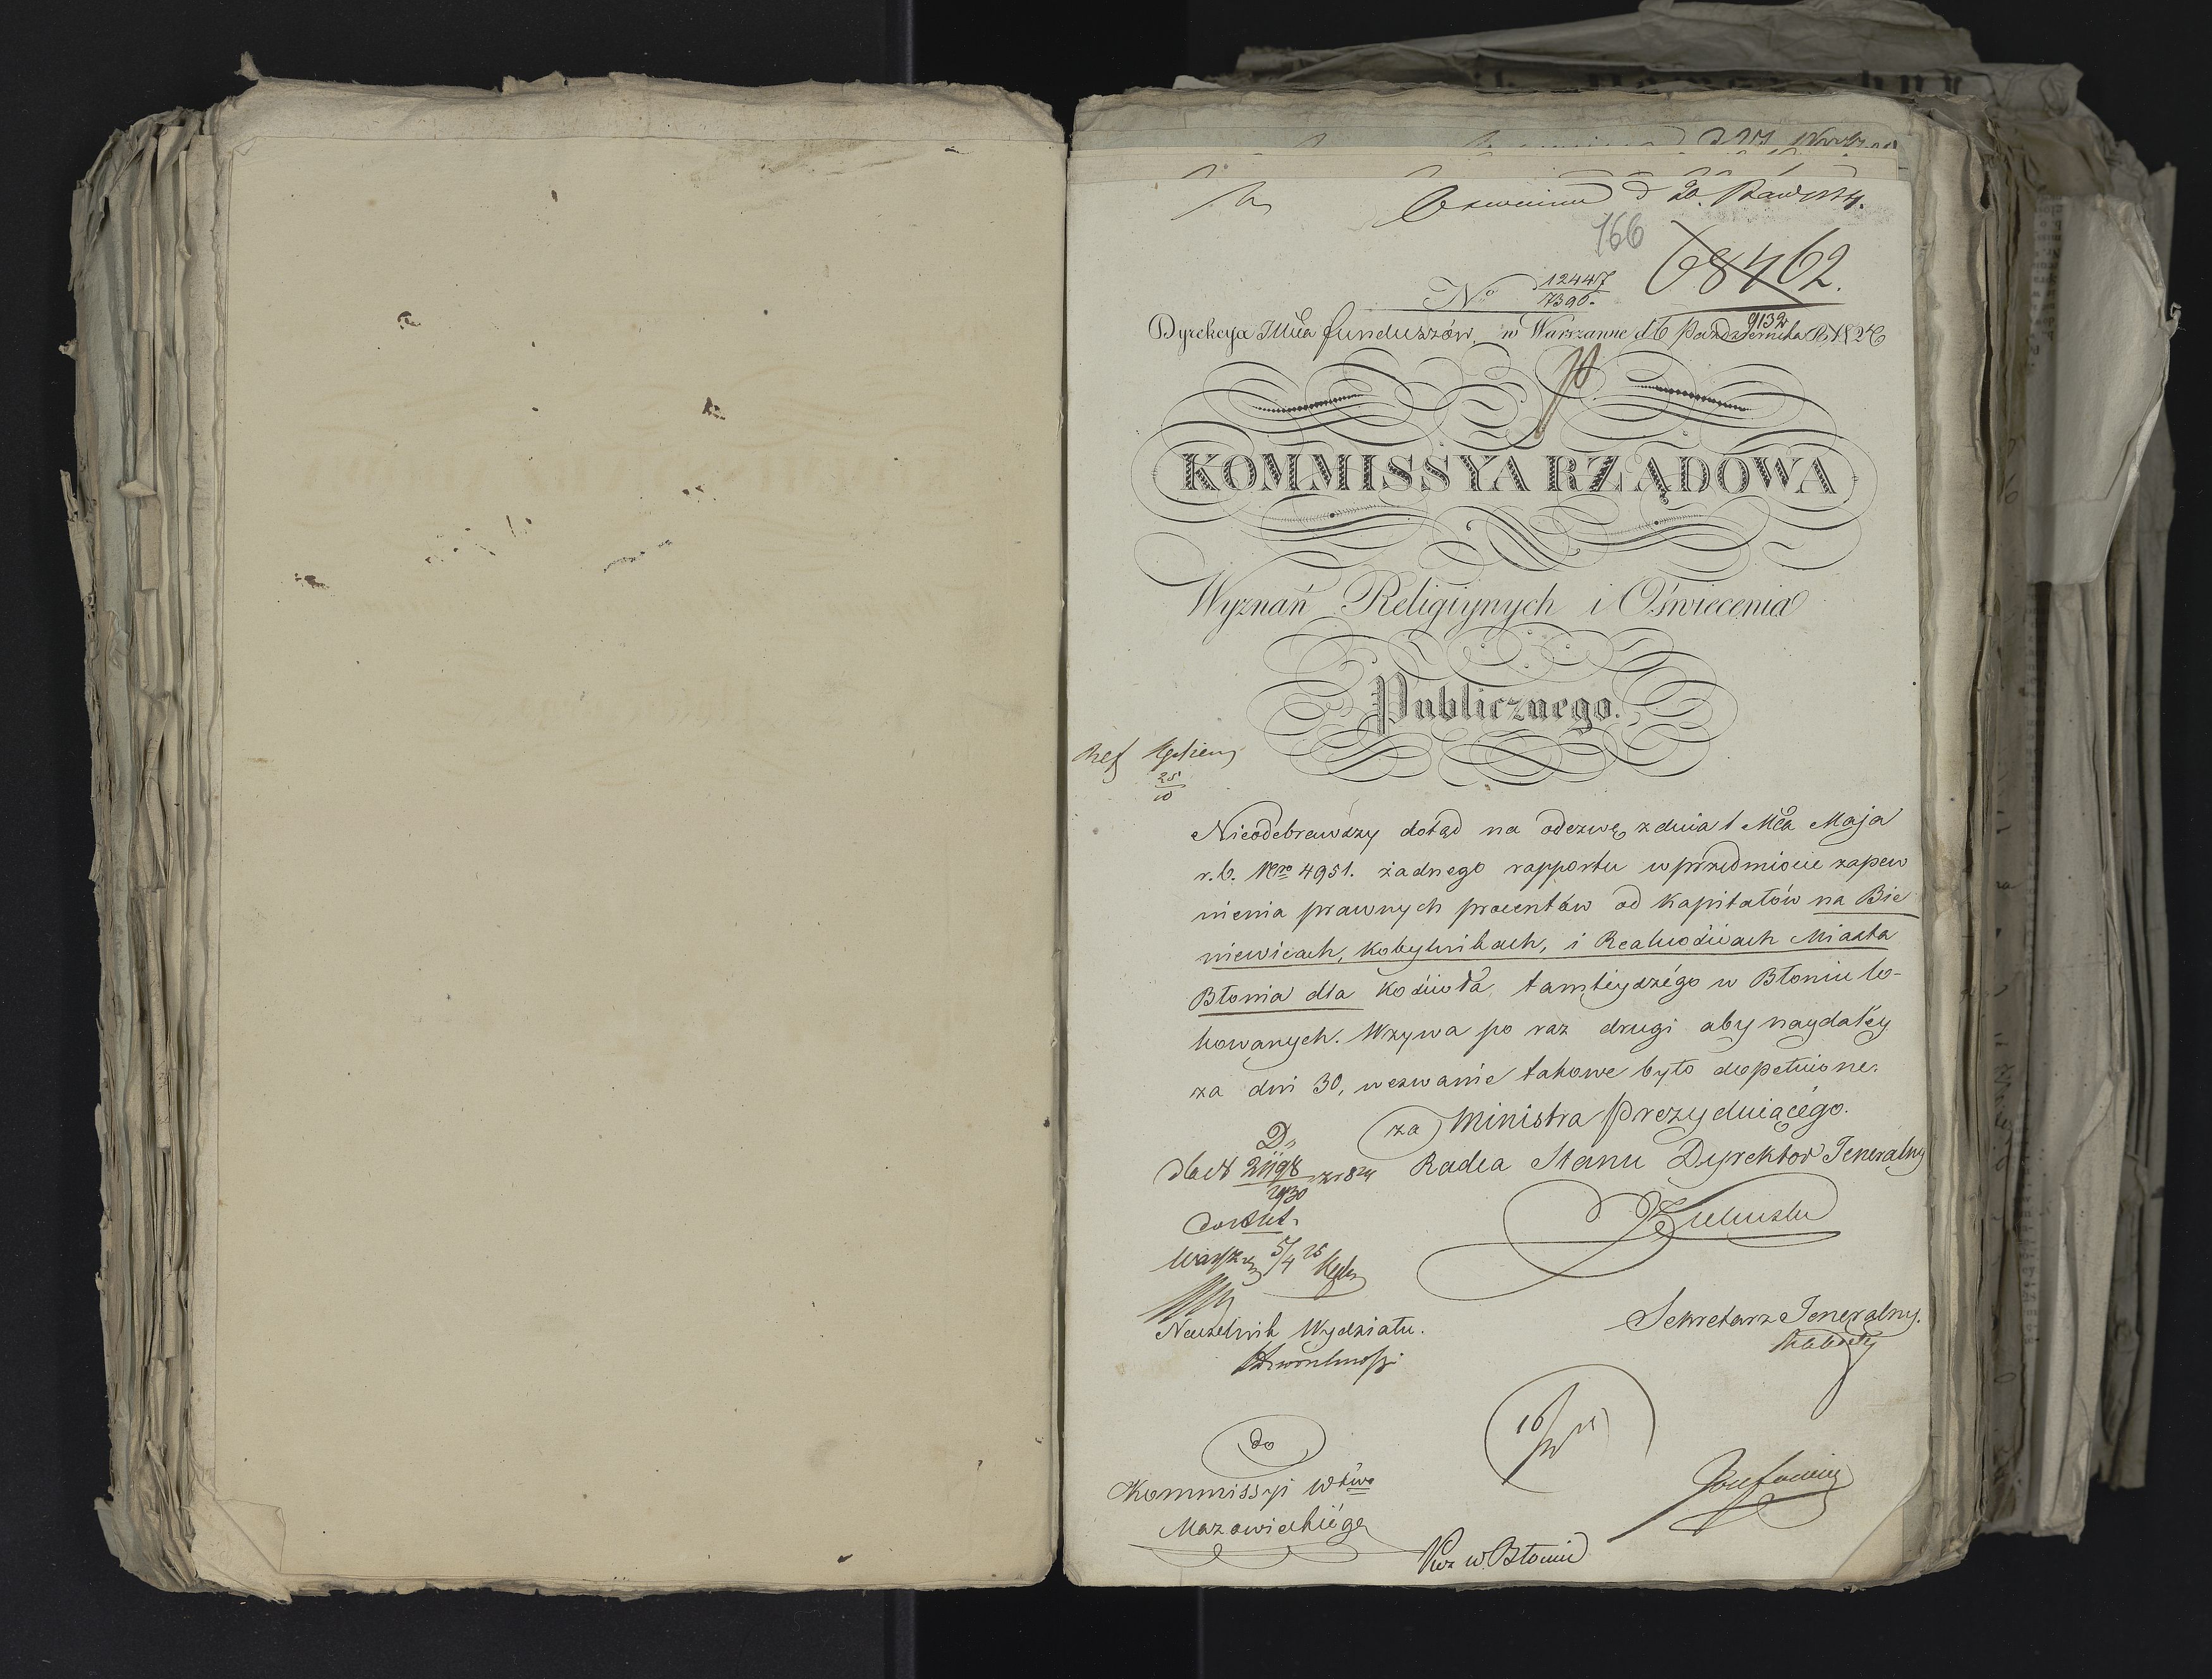 d 20.
166
68462.
No 12447
7390.
9132
Dyrekcya Mcła funduszów. w Warszawie d 6 Października R. 182
KOMMISSYA RZĄDOWA
Wyznań Religiynych i Oświecenia
Publicznego.
Ref
25
10
Nieodebrawszy dotąd na odezwę z dnia 1 Mca Maja
r.b. Nro 4951. żadnego rapportu w przedmiocie zapew
nienia prawnych procentów od kapitałów na Bie
niewicach, Kobylnikach, i Realnościach Miasta
Błonia dla Kościoła tamteyszégo w Błoniu lo-
kowanych. Wzywa po raz drugi aby naydaléy
za dni 30, wezwanie takowe było dopełnione.
za Ministra Prezyduiącégo.
Radca Stanu Dyrektor Jeneralny
D,
2930
5/4 25
Sekretarz Jeneralny.
Naczelnik Wydziału.
16
do
Kommissyi Wtwa
Mazowieckiégo
w Błoniu